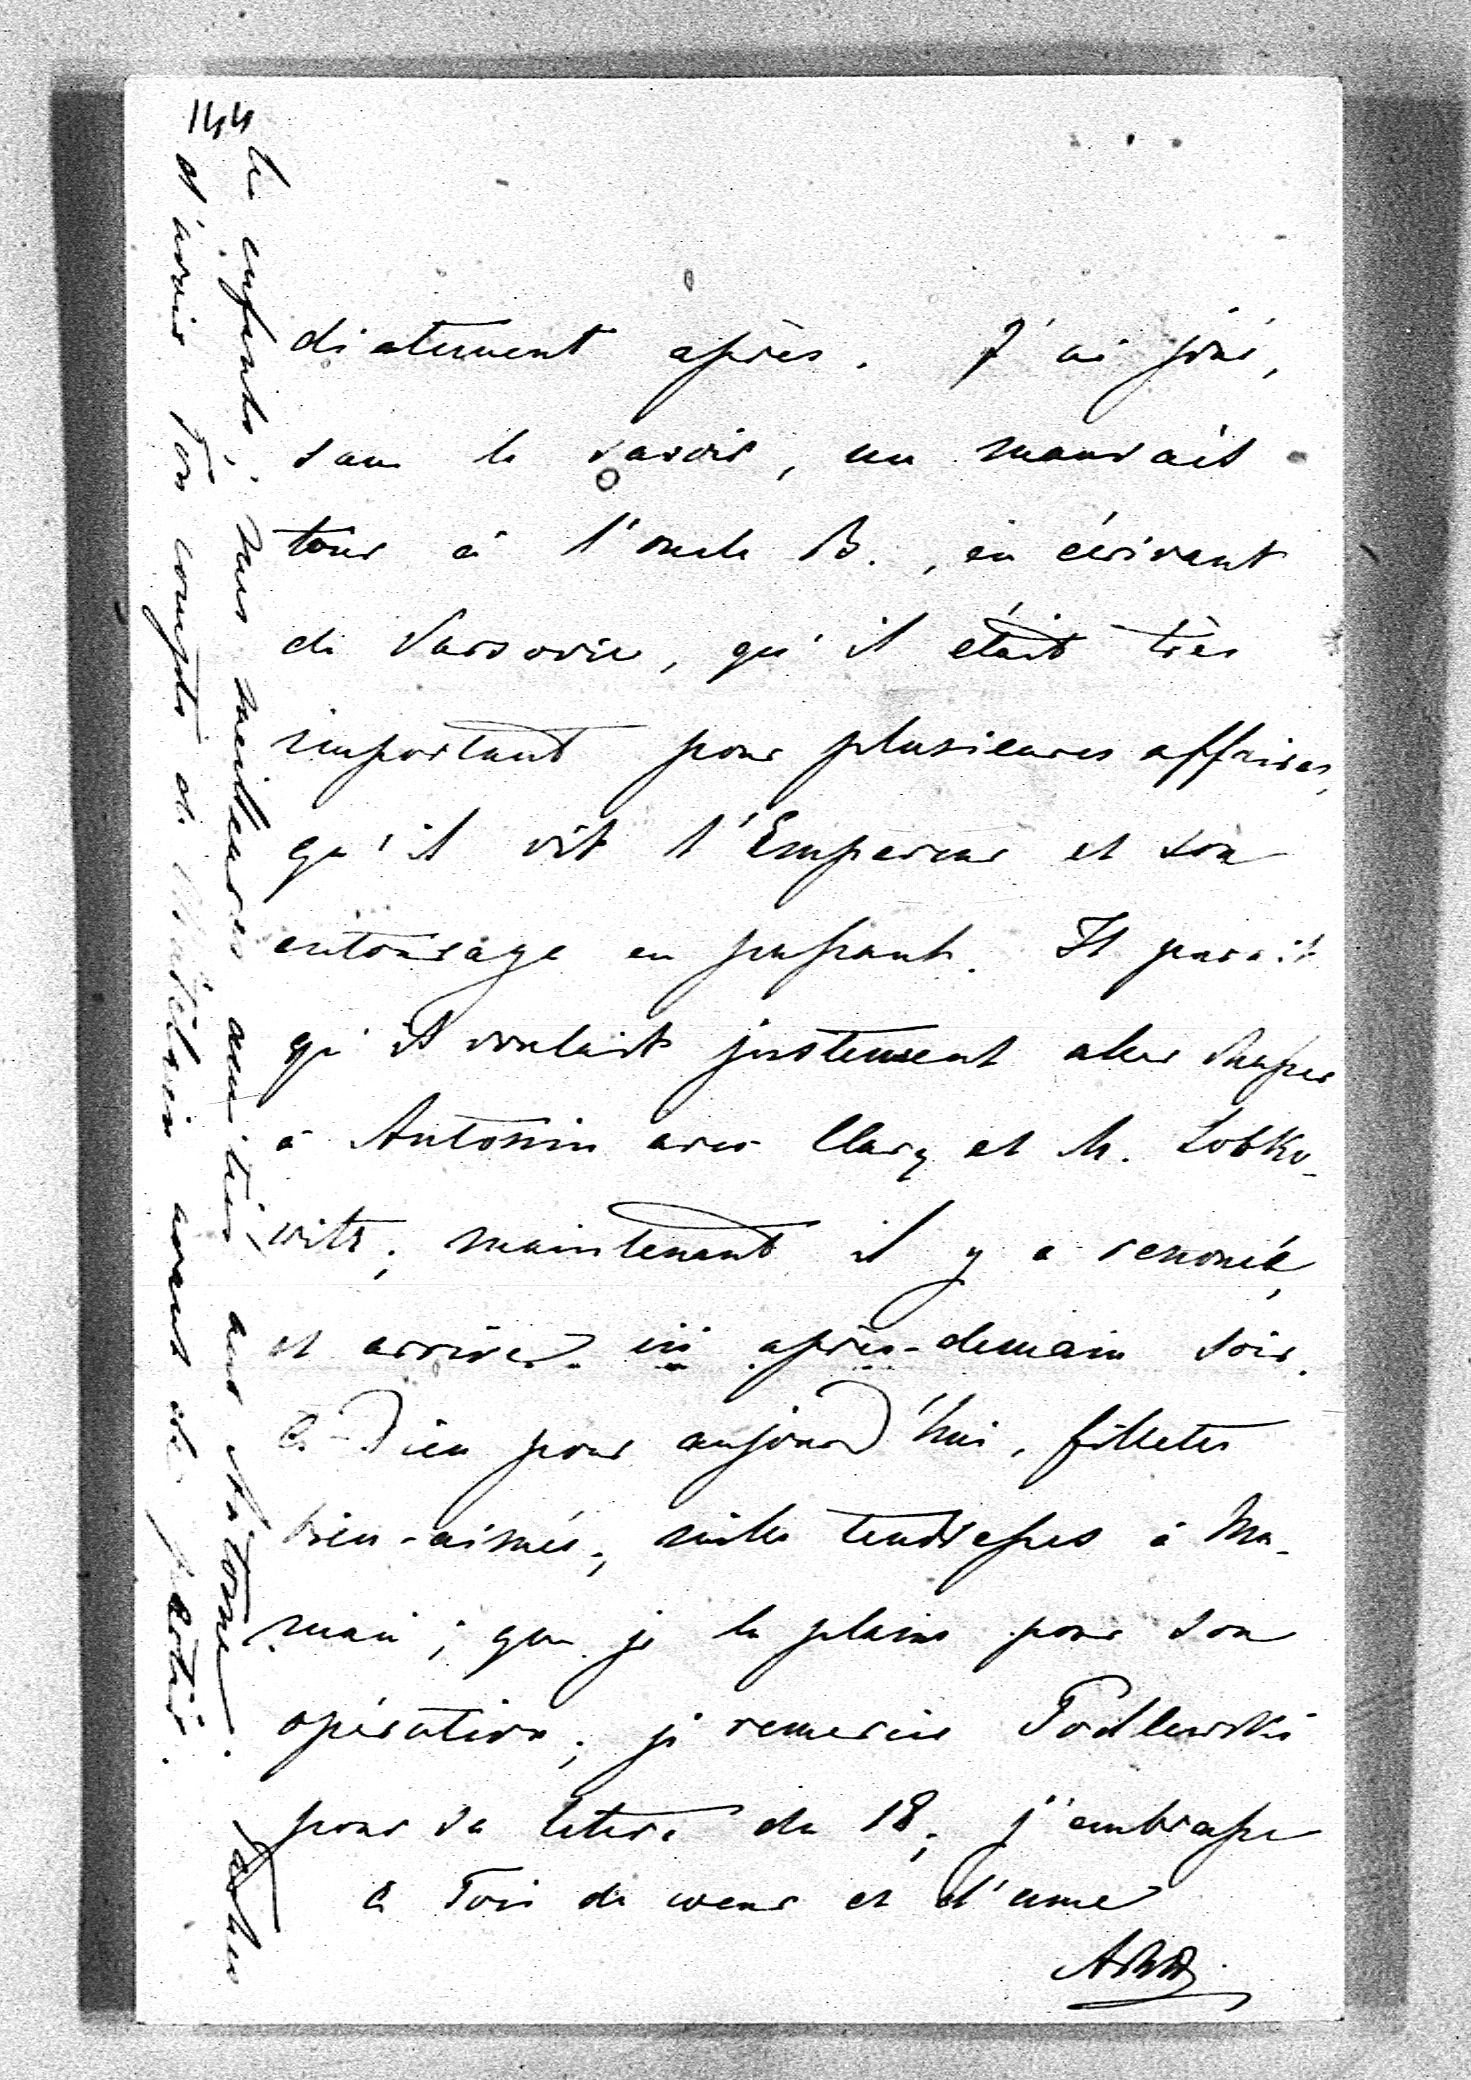 144
diatement après. J'ai joué,
sans le savoir, un mauvais
tour à l'oncle B., en écrivant
de Varsovie, qu'il était très
important pour plusieures affaires,
qu'il vît l'Empereur et son
entourage en passant. Il parait
qu'il voulait justement aller chasser
à Antonin avec Clary et M. Lobko-
witz; maintenant il y a renoncé,
et arrive ici après-demain soir.
A-Dieu pour aujourd'hui, fillette
bien-aimée; mille tendresses à Ma-
man; que je la plains pour son
opération; je remercie Podlewski
pour sa lettre du 18; j'embrasse
à Toi de coeur et d'ame
les enfants; mes meilleures amitiés aux Antoine. Tachez
d'avoir Ton compte de avant de partir.